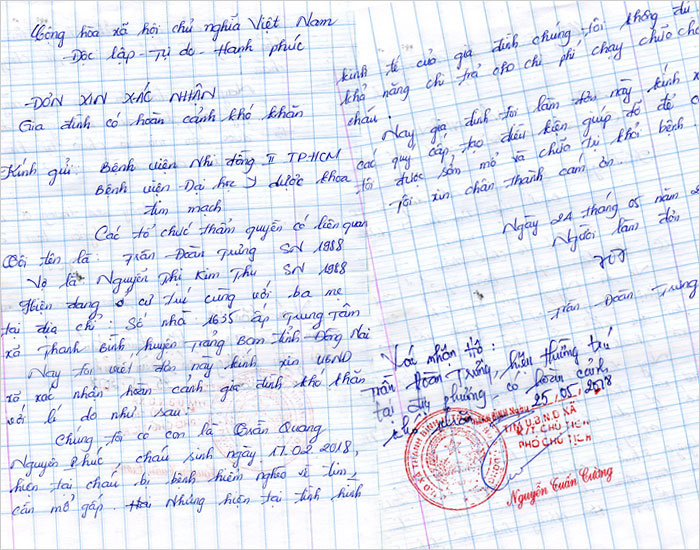 Cộng hòa xã hội chủ nghĩa Việt Nam
Độc lập - Tự do - Hạnh phúc
ĐƠN XIN XÁC NHẬN
Gia đình có hoàn cảnh khó khăn
Kính gửi: Bệnh viện Nhi đồng II TP.HCM
Bệnh viện Đại học Y dược khoa
tim mạch
Các tổ chức thẩm quyền có liên quan
Tôi tên là: Trần Đoàn Trung SN 1988
Vợ là Nguyễn Thị Kim Thu SN 1988
Hiện đang ở cư trú cùng với ba mẹ
tại địa chỉ: Số nhà 1635 ấp Trung Tâm
xã Thanh Bình, huyện Trảng Bom tỉnh Đồng Nai
Nay tôi viết đơn này kính xin UBND
xã xác nhận hoàn cảnh gia đình khó khăn
với lí do như sau:
Chúng tôi có con là Trần Quang
Nguyên Phúc cháu sinh ngày 17.02.2018,
hiện tại cháu bị bệnh hiểm nghèo về tim,
cần mổ gấp. Nhưng hiện tại tình hình
kinh tế của gia đình chúng tôi không đủ
khả năng chi trả cho chi phí chạy chữa cho
cháu.
Nay gia đình tôi làm đơn này kính x
các quý cấp tạo điều kiện giúp đỡ để c
tôi được sớm mổ và chữa trị khỏi bệnh
Tôi xin chân thành cám ơn.
Ngày 24 tháng 05 năm 2
Người làm đơn
Trần Đoàn Trung
Xác nhận Hộ:
Trần Đoàn Trung, hiện thường trú
tại địa phương, có hoàn cảnh
khó khăn 25/05/2018
TM.U.B.N.D XÃ
KT. CHỦ TỊCH
PHÓ CHỦ TỊCH
Nguyễn Tuấn Cường